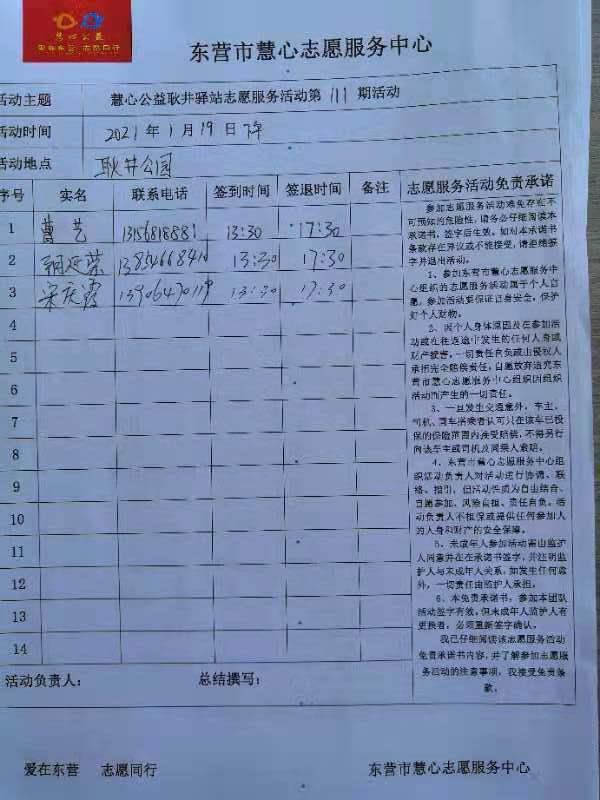 慧心公益
爱在东营 志愿同行
东营市慧心志愿服务中心
活动主题 慧心公益耿井驿站志愿服务活动第 111 期活动
活动时间 2021年1月19日下午
活动地点 耿井公园
序号 实名 联系电话 签到时间 签退时间 备注
1 曹艺 13:30 17:30
2 13:30 17:30
3 宋庆霞 13:30 17:30
4
5
6
7
8
9
10
11
12
13
14
活动负责人： 总结撰写：
志愿服务活动免责承诺
参加志愿服务活动难免存在不
可预知的危险性，请务必仔细阅读本
承诺书，签字后生效。如对本承诺书
条款存在异议或不能接受，请拒绝签
字并退出活动。
1、参加东营市慧心志愿服务中
心组织的志愿服务活动属于个人自
愿，参加活动要保证自身安全，保护
好个人财物。
2、因个人身体原因及在参加活
动或在往返途中发生的任何人身或
财产损害，一切责任自负或由侵权人
承担完全赔偿责任，自愿放弃追究东
营市慧心志愿服务中心组织因组织
活动而产生的一切责任。
3、一旦发生交通意外，车主、
司机、同车搭乘者认可只在该车已投
保的保险范围内接受赔偿，不得另行
向该车车主或司机及同乘人索赔。
4、东营市慧心志愿服务中心组
织活动负责人对活动进行协调、联
络、指引，但活动性质为自由结合、
自愿参加、风险自担、责任自负。活
动负责人不担保或提供任何参加人
的人身和财产的安全保障。
5、未成年人参加活动需由监护
人同意并在在承诺书签字，并注明监
护人与未成年人关系，如发生任何意
外，一切责任由监护人承担。
6、本免责承诺书，参加本团队
活动签字有效，但未成年人监护人有
更换者，必须重新签字确认。
我已仔细阅读该志愿服务活动
免责承诺书内容，并了解参加志愿服
务活动的注意事项，我接受免责条
款。
爱在东营 志愿同行 东营市慧心志愿服务中心